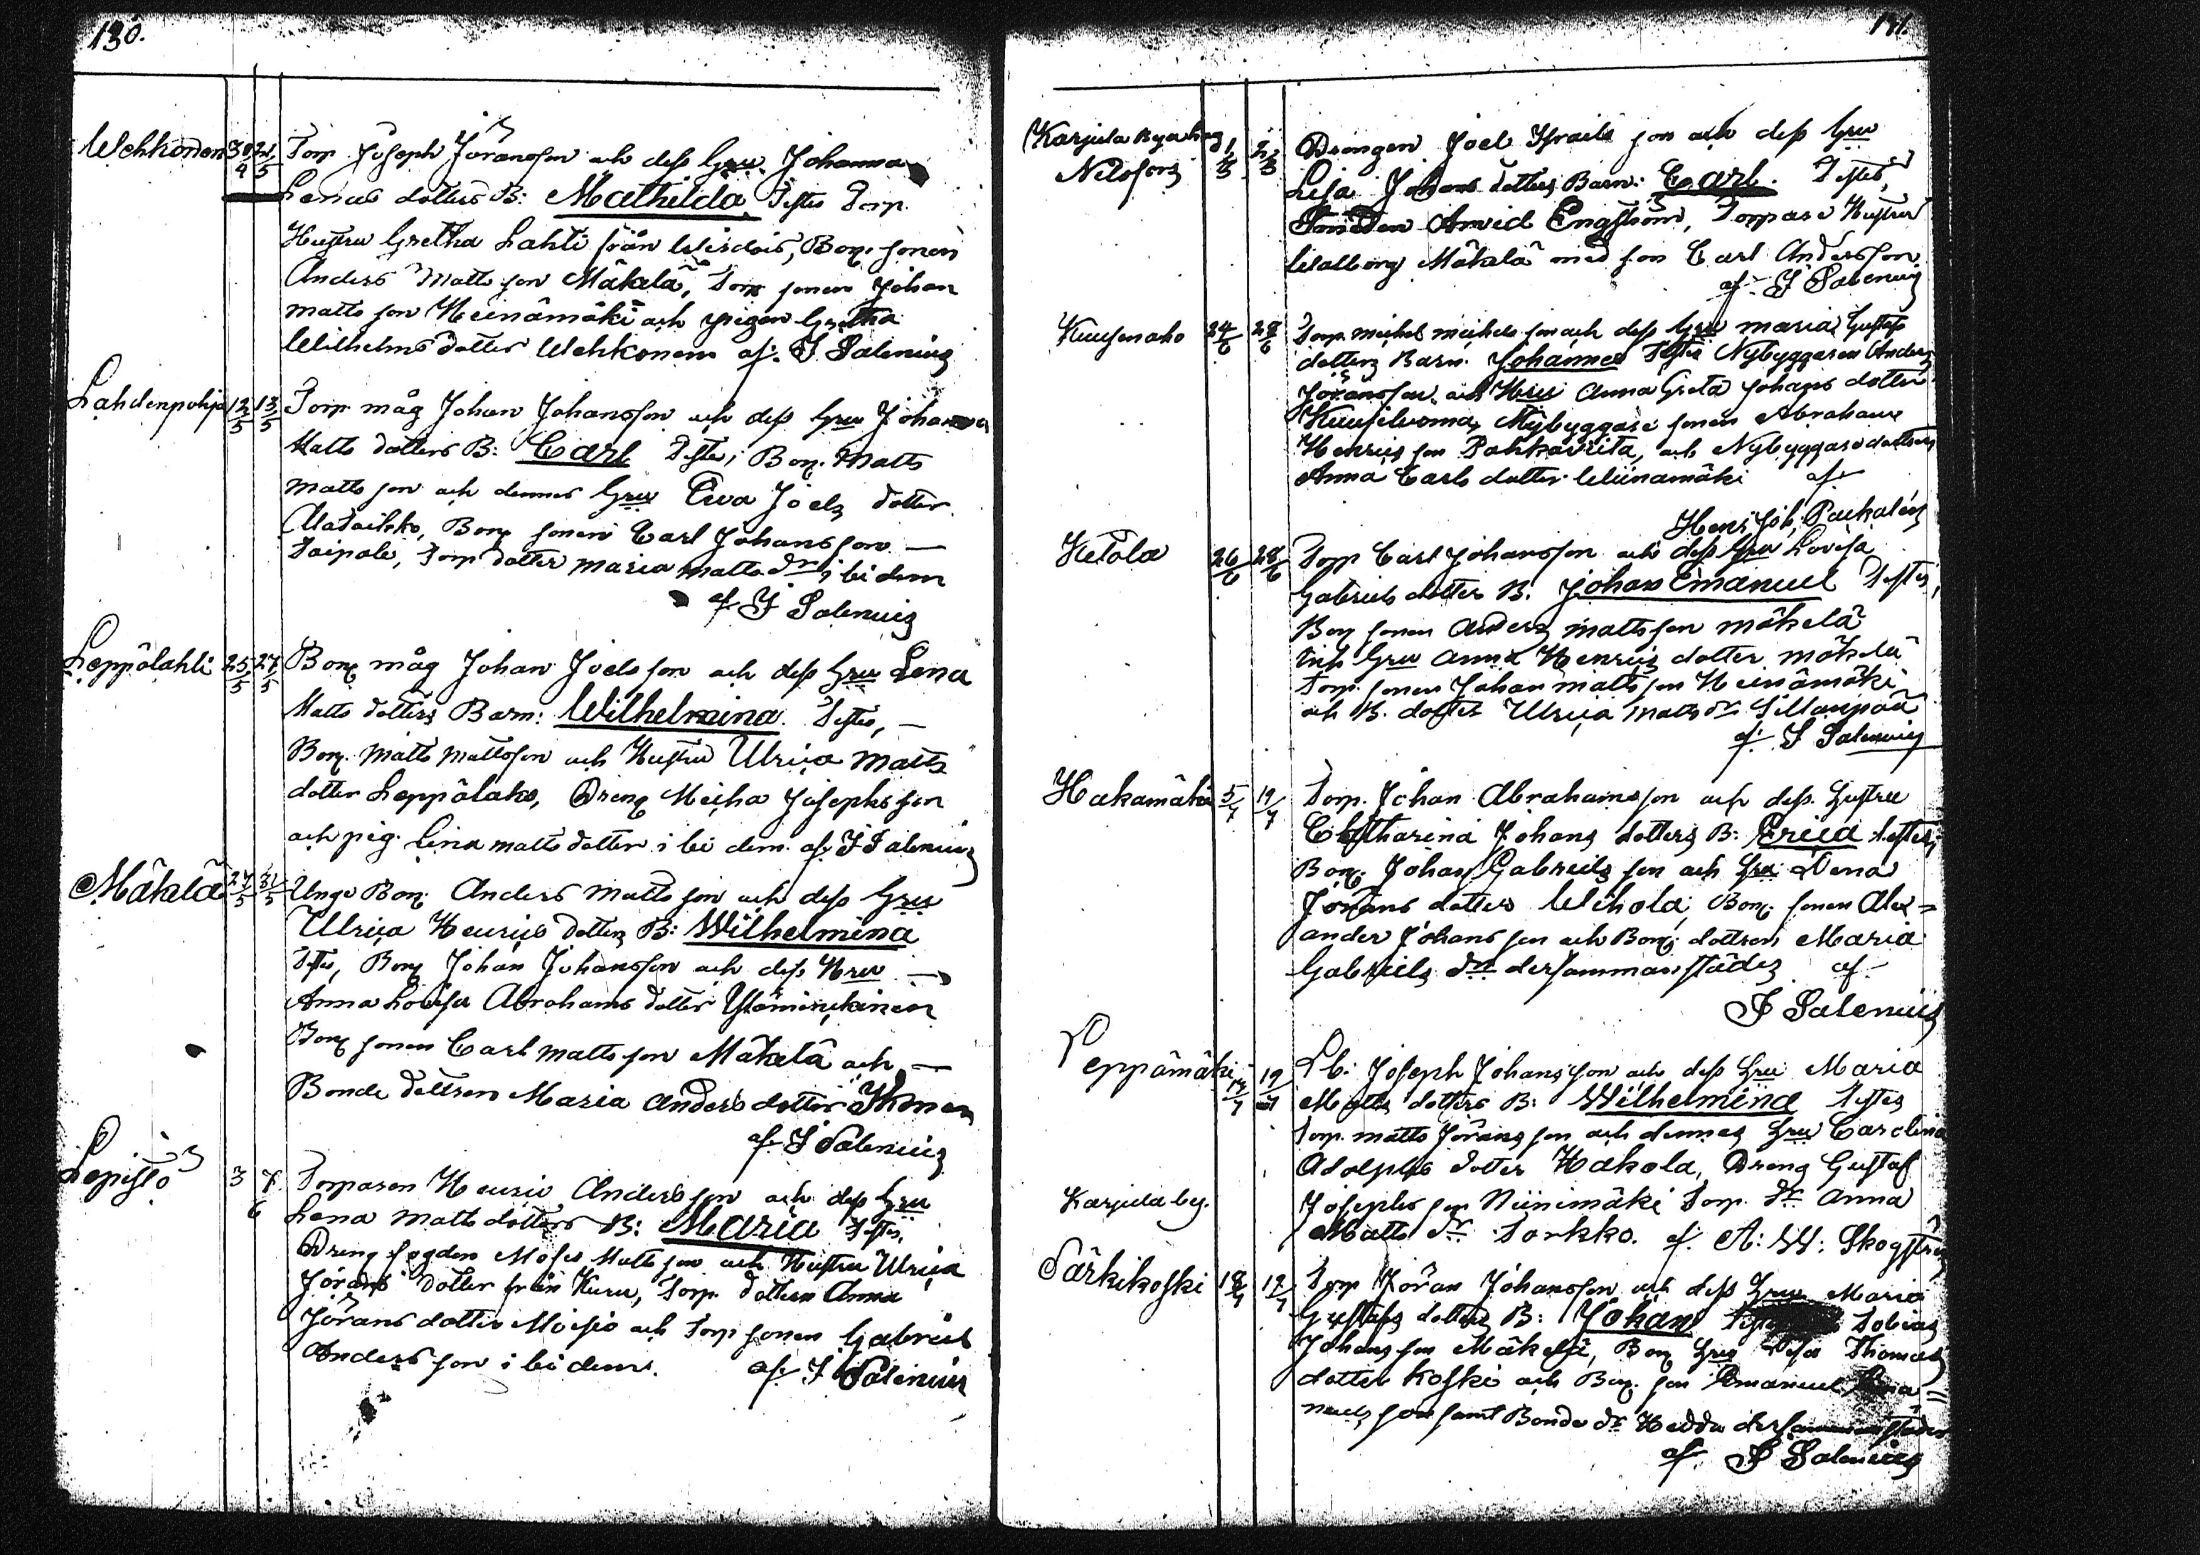 130.
Wehkonen 30/4 21/5 Torp. Joseph Jöransson och dess Hru Johanna
Lenas dotters B: Mathilda Testes Torp.
Hustru Gretha Lahti från Wirdois, Bon. sonen
Anders Matts son Mäkelä, Torp sonen Johan
Matts son Heinämäki och pigan Gretha
Wilhelms dotter Wehkonen af. J Salenius
Lahdenpohja 12/5 13/5 Torp. måg Johan Johansson och dess Hru Johanna
Matts dotters B: Carl Testes, Bon. Matts
Matts son och dennes Hru Ewa Joels dotter
Bon sonen Carl Johansson —
Taipale, Torp dotter Maria Matts dr i bi dem
af J Salenius
Leppälahti 25/5 27/5 Bon måg Johan Joels son och dess Hru Lena
Matts dotters Barn: Wilhelmina. Testes, —
Bon. Matts Mattsson och Hustru Ulrica Matts
dotter Leppälaks, Dreng Micha Josephs son
och pig. Lina Matts dotter i bi dem. af J Salenius
Mäkelä 27/5 31/5 Unge Bon. Anders Matts son och dess Hru
Ulrica Henrics dotters B: Wilhelmina
Testes, Bon Johan Johansson och dess Hru —
Anna Lovisa Abrahams dotter
Bon sonen Carl Matts son Mäkelä och —
Bonde dottren Maria Anders dotter Ihonen
af. J Salenius
Lepistö 3 7/6 Torparen Henric Anders son och dess Hru
Lena Matts dotters B: Maria Testes,
Dreng fogden Moses Matts son och Hustru Ulrica
Jörans dotter från Kuru, Torp. dottren Anna
Jörans dotter Moisio och Torp sonen Gabriel
Anders son i bi dem. af. J Salenius
131.
Karjula Byalag 1/5 2/5 Drengen Joel Israels son och dess Hru
Nilsfors Lisa Johans dotters Barn: Carl. Testes,
Arvid Engström, Torpare Hustru
Walborg Mäkelä med son Carl Andersson
af. J Salenius
Kuusenaho 24/6 28/6 Torp. Michel Michels son och dess Hru Maria Gustafs
dotters Barn. Johannes Testes Nybyggaren Anders
Jöransson, och Hru Anna Greta Johans dotter
Kuusiluoma, Nybyggare sonen Abraham
Henrics son Pahkaviita, och Nybyggare dottren
Anna Carls dotter Wiinamäki af
Henr. Joh. Pachalén
Ketola 26/6 28/6 Torp Carl Johansson och dess Hru Lovisa
Gabriels dotters B. Johan Emanuel Testes,
Bon sonen Anders Matts son Mäkelä
Hru Anna Henrics dotter Mäkelä
Torp. sonen Johan Matts son Heinämäki
och B. dotter Ulrica Matts dr Sillanpää
af. J Salenius
Hakamäki 5/7 19/7 Torp. Johan Abrahamsson och dess Hustru
Catharina Johans dotters B: Erica testes;
Bon. Johan Gabriels son och Hru Lena
Jörans dotter Wihola, Bon. sonen Alex=
ander Johans son och Bon. dottren Maria
Gabriels dr dersammanstädes af
J Salenius
Peppämäki 14/7 19/7 Lb: Joseph Johansson och dess Hru Maria
Matts dotters B: Wilhelmina Testes
Torp. Matts Jörans son och dennes Hru Carolina
Adolphs dotter Hakola, Dreng Gustaf
Karjula by. Josephs son Niinimäki Torp. dr Anna
Matts dr Torkko. af. A: W: Skogström
Särkikoski 18/7 19/7 Torp Jöran Johansson och dess Hru Maria
Gustafs dotters B: Johan Tobias
Johans son Mäkelä, Bon Hru Lisa Thomas
dotter Koski och Bon. son Emanuel Ema=
nuels son samt Bonde dr Hedda dersammanstädes
af. J Salenius